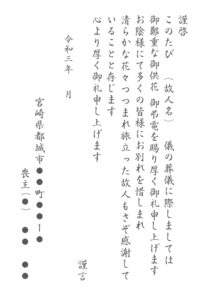 謹啓
このたび　（故人名）　儀の葬儀に際しましては
御鄭重な御供花　御弔電を賜り厚く御礼申し上げます
お陰様にて多くの皆様にお別れを惜しまれ
清らかな花々つつまれ旅立った故人もさぞ感謝して
いることと存じます
心より厚く御礼申し上げます
謹言
令和三年　月
宮崎県都城市●●町●●ー●
喪主（●）　●●　●●